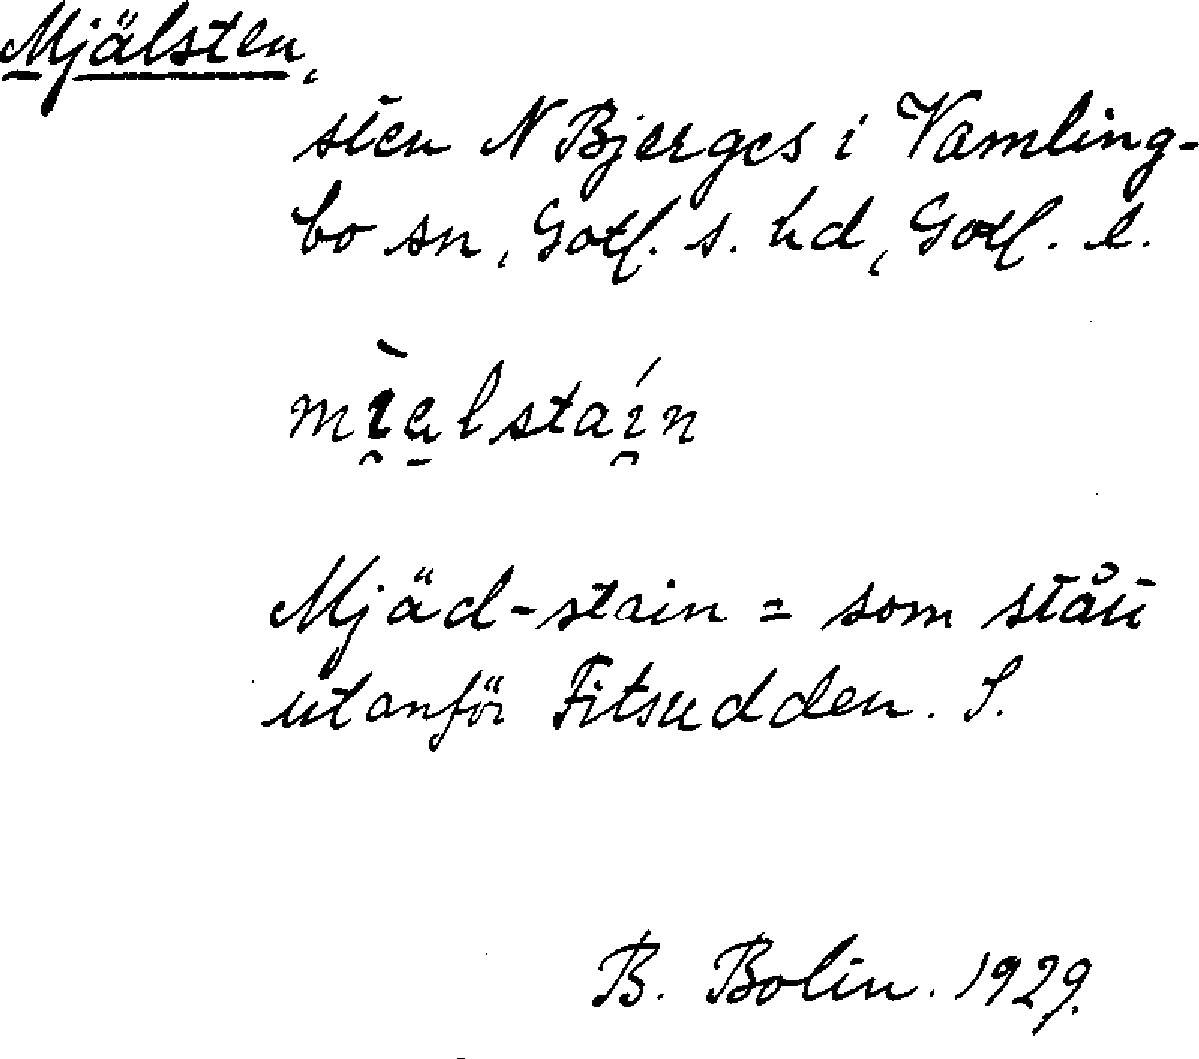 Mjälsten,
sten N Bjerges i Vamling-
bo sn, Gotl. s. hd, Gotl. l.
mı̯̀a̱lstaı̯́n
Mjäd-stain = som stått
utanför Fitsudden. S.
B. Bolin. 1929.